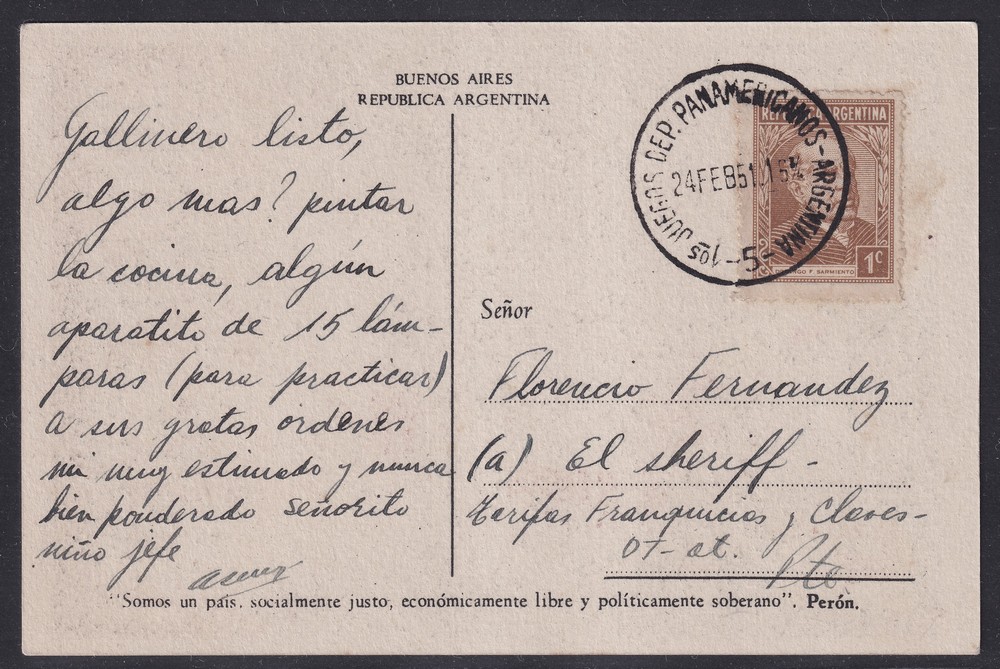 BUENOS AIRES
REPUBLICA ARGENTINA
Gallinero listo,
algo mas? pintar
la cocina, algún
aparatito de 15 lám-
paras (para practicar)
a sus gratas ordenes
mi muy estimado y nunca
bien ponderado señorito
niño jefe
1os JUEGOS DEP. PANAMERICANOS - ARGENTINA - 5 -
24 FEB 51
REPUBLICA ARGENTINA
DOMINGO F. SARMIENTO
1c
Señor
Florencio Fernandez
(a) El sheriff -
Tarifas Franquicias y Claves -
OT - at. Pte
"Somos un país, socialmente justo, económicamente libre y políticamente soberano". Perón.